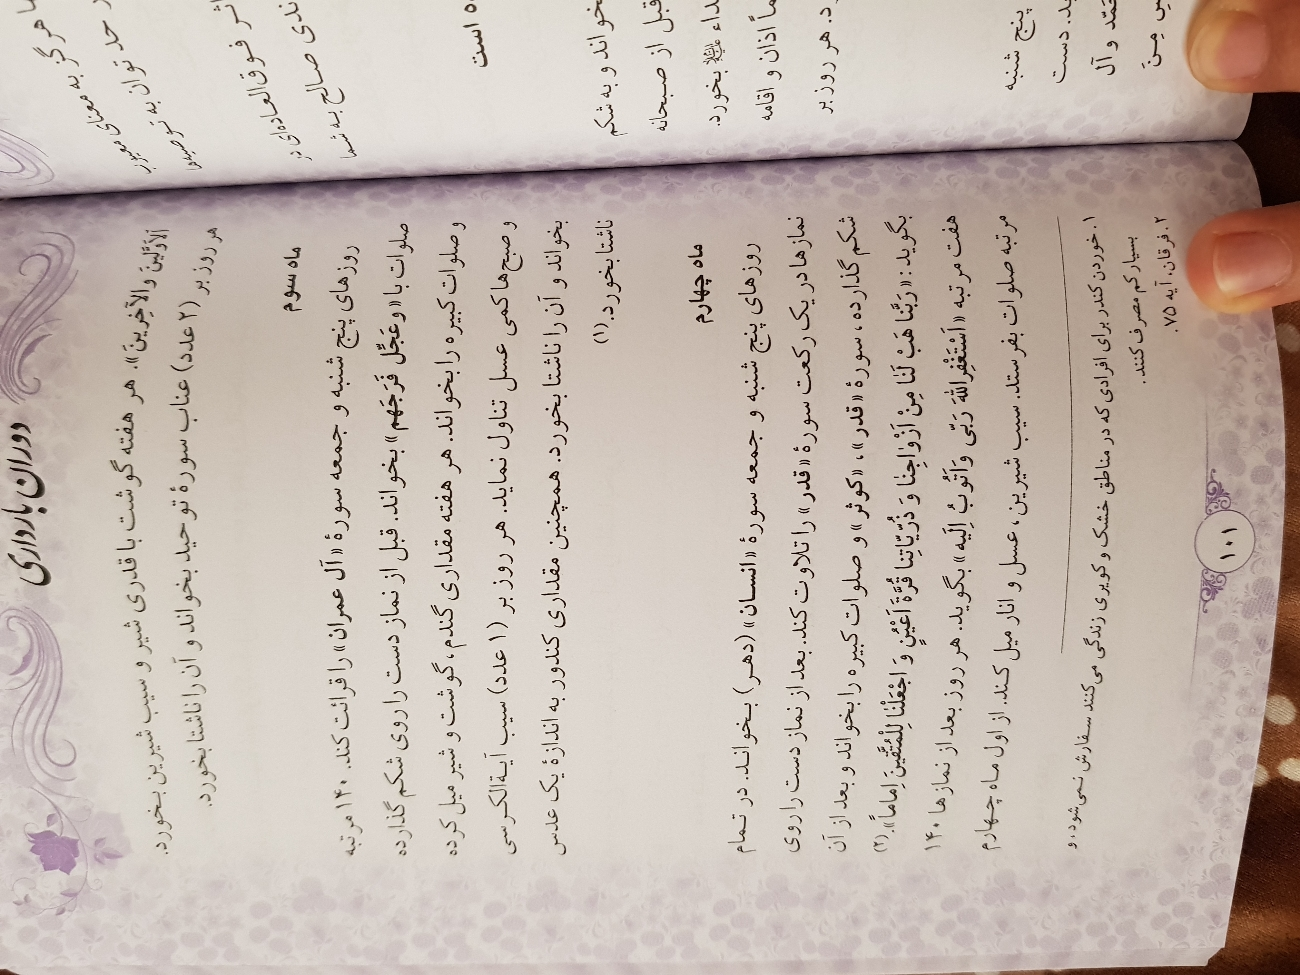 دوران بارداری
الاَوَّلینَ وَالآخِرینَ)». هر هفته گوشت با قدری شیر و سیب شیرین بخورد.
هر روز بر (۲ عدد) عناب سورهٔ توحید بخواند و آن را ناشتا بخورد.
ماه سوم
روزهای پنج شنبه و جمعه سورهٔ «آل عمران» را قرائت کند. ۱۴۰ مرتبه
صلوات با «وعَجِّل فَرَجَهم» بخواند. قبل از نماز دست را روی شکم گذارده
و صلوات کبیره را بخواند. هر هفته مقداری گندم، گوشت و شیر میل کرده
و صبح‌ها کمی عسل تناول نماید. هر روز بر (۱ عدد) سیب آیةالکرسی
بخواند و آن را ناشتا بخورد. همچنین مقداری کندور به اندازهٔ یک عدس
ناشتا بخورد.(۱)
ماه چهارم
روزهای پنج شنبه و جمعه سورهٔ «انسان» (دهر) بخواند. در تمام
نمازها در یک رکعت سورهٔ «قدر» را تلاوت کند. بعد از نماز دست را روی
شکم گذارده، سورهٔ «قدر»، «کوثر» و صلوات کبیره را بخواند و بعد از آن
بگوید: «رَبَّنا هَبْ لَنا مِنْ اَزْواجِنا وَ ذُرِّیّاتِنا قُرَّةَ اَعْیُنٍ وَ اجْعَلْنا لِلْمُتَّقینَ اِماماً».(۲)
هفت مرتبه «اَسْتَغْفِرُاللهَ رَبّی وَاَتُوبُ اِلَیه» بگوید. هر روز بعد از نمازها ۱۴۰
مرتبه صلوات بفرستد. سیب شیرین، عسل و انار میل کند. از اول ماه چهارم
۱. خوردن کندر برای افرادی که در مناطق خشک و کویری زندگی می‌کنند سفارش نمی‌شود، و
بسیار کم مصرف کنند.
۲. فرقان. آیه ۷۵.
۱۰۱